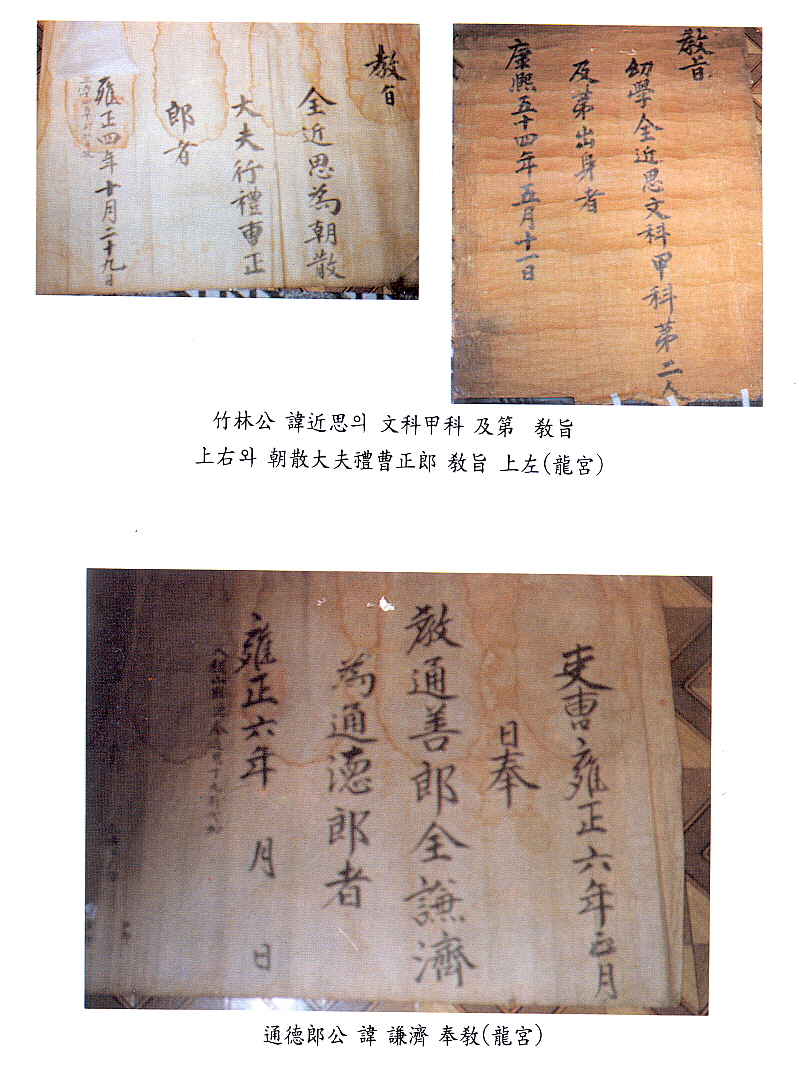 敎旨
全近思爲朝散
大夫行禮曹正
郎者
雍正四年十月二十九日
敎旨
幼學全近思文科甲科第二人
及第出身者
康熙五十四年五月十一日
竹林公 諱近思의 文科甲科 及第 敎旨
上右와 朝散大夫禮曹正郎 敎旨 上左(龍宮)
吏曹雍正六年正月
日奉
敎通善郎全謙濟
爲通德郎者
雍正六年 月 日
通德郎公 諱 謙濟 奉敎(龍宮)